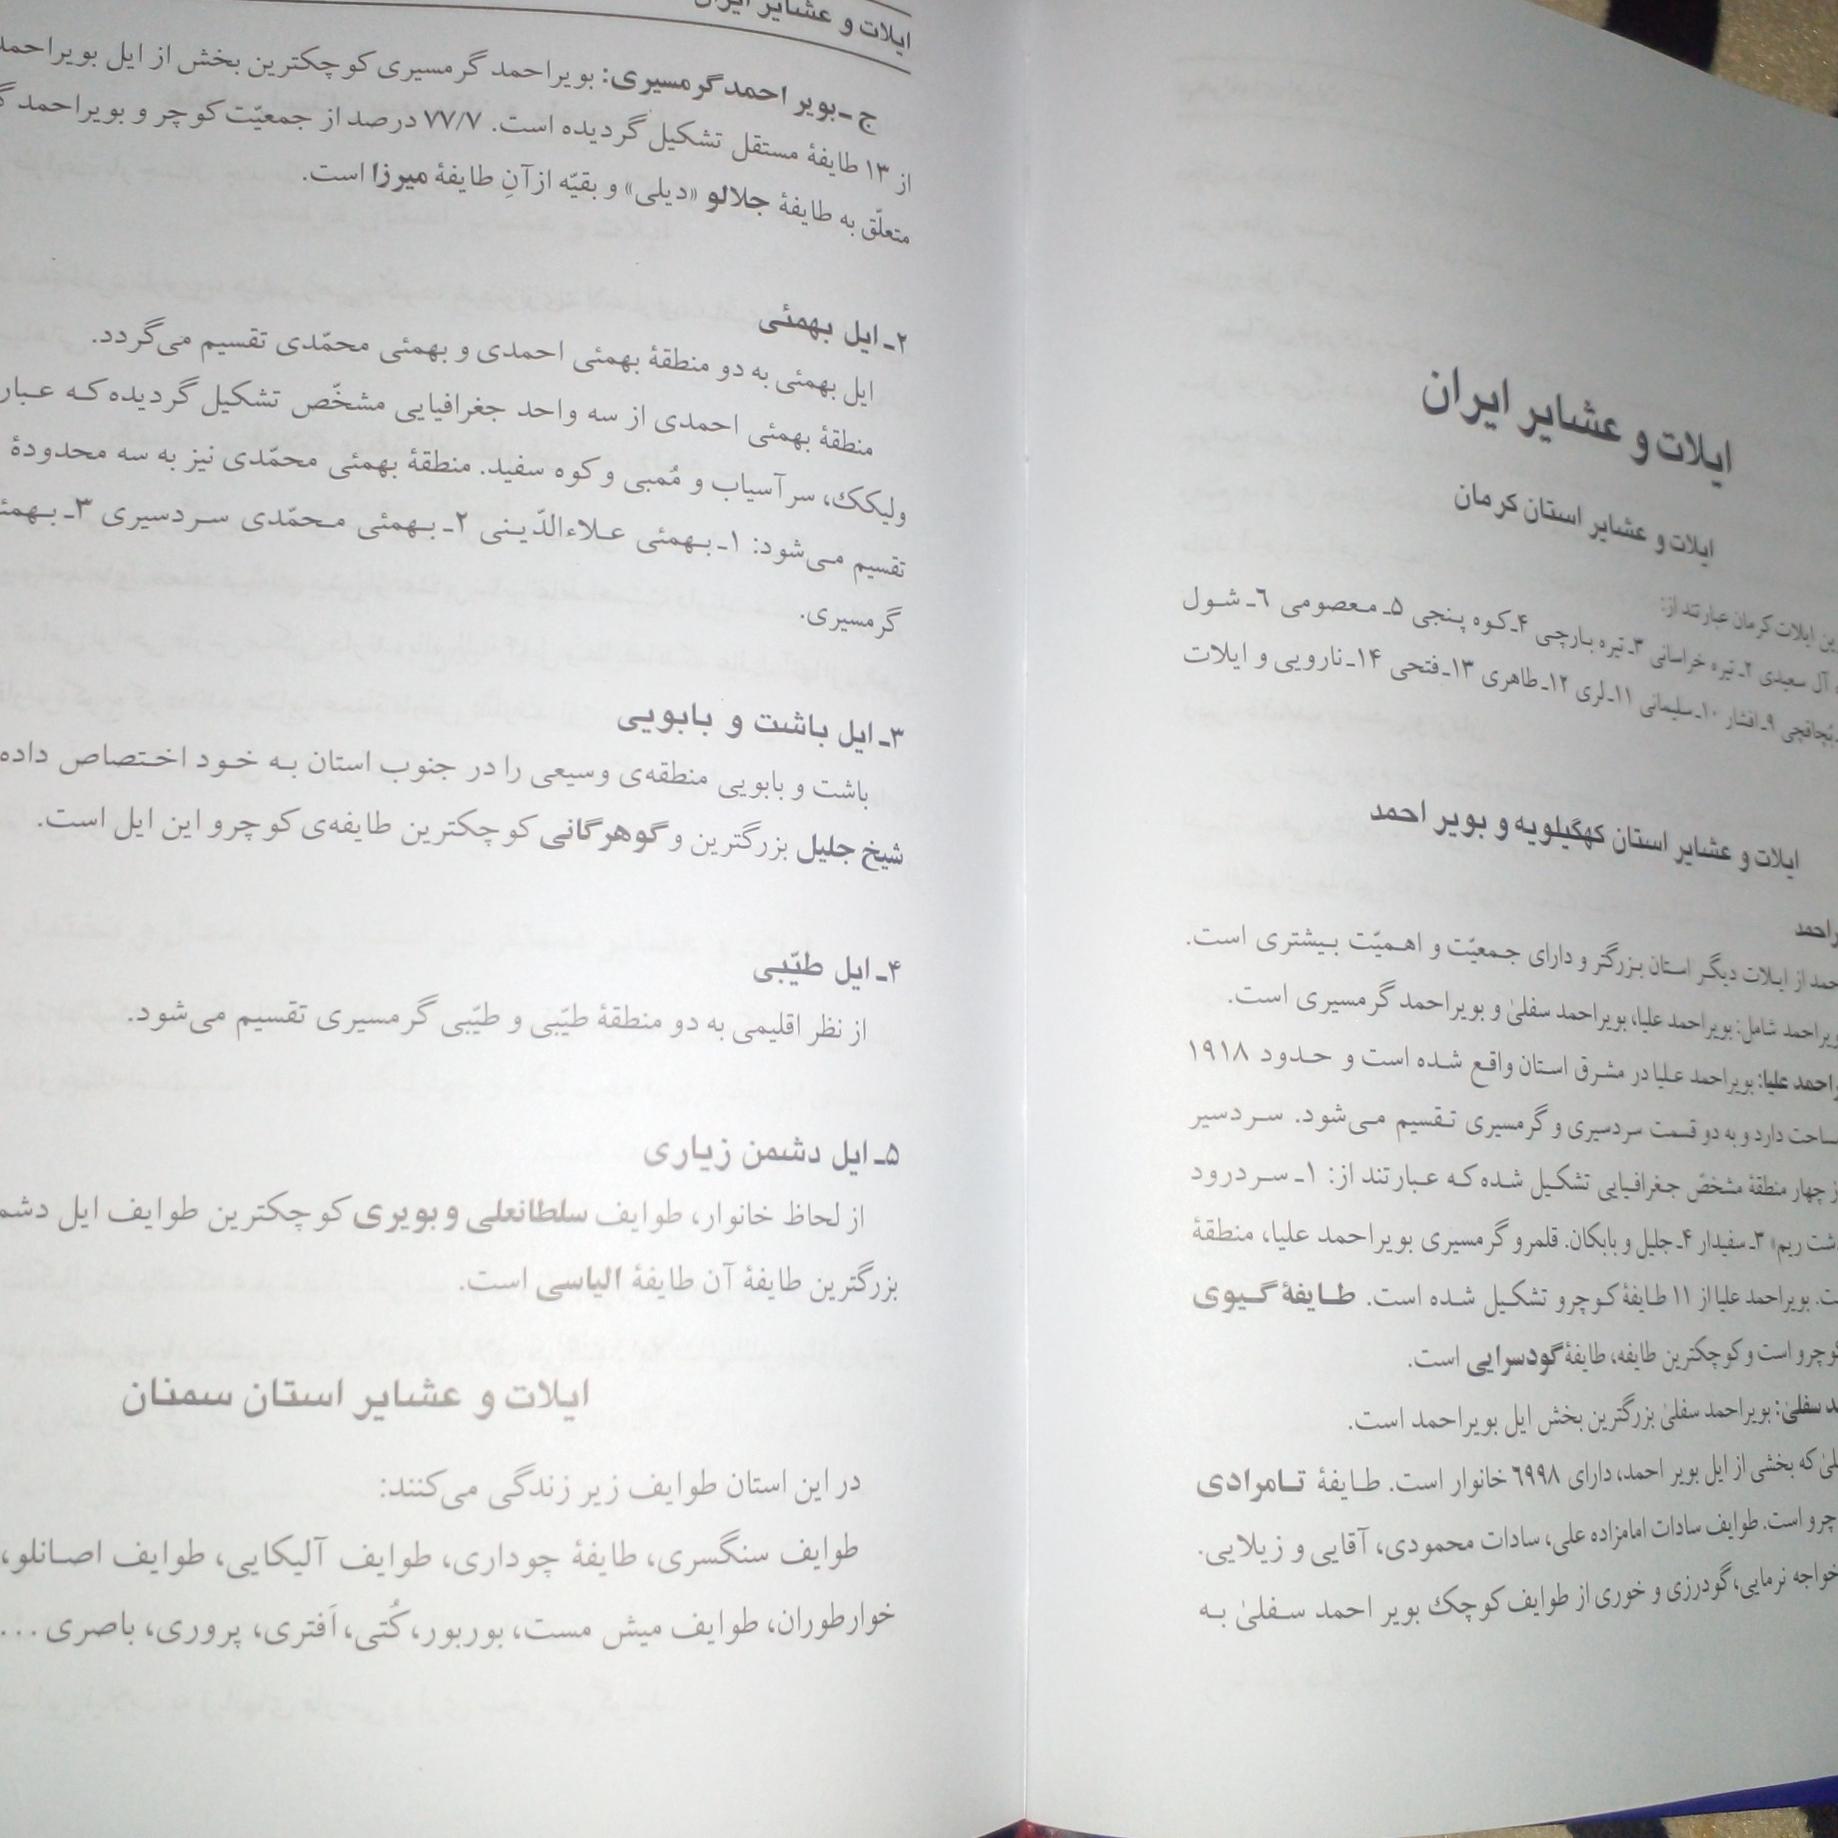 ایلات و عشایر ایران
ایلات و عشایر استان کرمان
ایلات کرمان عبارتند از:
آل سعیدی ۲ـ تیره خراسانی ۳ـ تیره بارچی ۴ـ کوه پنجی ۵ـ معصومی ۶ـ شول
بچاقچی ۹ـ افشار ۱۰ـ سلیمانی ۱۱ـ لری ۱۲ـ طاهری ۱۳ـ فتحی ۱۴ـ نارویی و ایلات
ایلات و عشایر استان کهگیلویه و بویر احمد
از ایلات دیگر استان بزرگتر و دارای جمعیّت و اهمیّت بیشتری است.
شامل: بویراحمد علیا، بویراحمد سفلیٰ و بویراحمد گرمسیری است.
علیا: بویراحمد علیا در مشرق استان واقع شده است و حدود ۱۹۱۸
دارد و به دو قسمت سردسیری و گرمسیری تقسیم می‌شود. سردسیر
چهار منطقهٔ مشخصّ جغرافیایی تشکیل شده که عبارتند از: ۱ـ سردرود
ریم» ۳ـ سفیدار ۴ـ جلیل و بابکان. قلمرو گرمسیری بویراحمد علیا، منطقهٔ
بویراحمد علیا از ۱۱ طایفهٔ کوچرو تشکیل شده است. طایفهٔ گیوی
کوچرو است و کوچکترین طایفه، طایفهٔ گودسرایی است.
سفلیٰ: بویراحمد سفلیٰ بزرگترین بخش ایل بویراحمد است.
که بخشی از ایل بویر احمد، دارای ۶۹۹۸ خانوار است. طایفهٔ تامرادی
است. طوایف سادات امامزاده علی، سادات محمودی، آقایی و زیلایی.
خواجه نرمایی، گودرزی و خوری از طوایف کوچک بویر احمد سفلیٰ به
ایلات و عشایر ایران
ج ـ بویر احمد گرمسیری: بویراحمد گرمسیری کوچکترین بخش از ایل بویراحمد
از ۱۳ طایفهٔ مستقل تشکیل گردیده است. ۷۷/۷ درصد از جمعیّت کوچر و بویراحمد
متعلّق به طایفهٔ جلالو «دیلی» و بقیّه از آنِ طایفهٔ میرزا است.
۲ـ ایل بهمئی
ایل بهمئی به دو منطقهٔ بهمئی احمدی و بهمئی محمّدی تقسیم می‌گردد.
منطقهٔ بهمئی احمدی از سه واحد جغرافیایی مشخّص تشکیل گردیده که
ولیکک، سرآسیاب و مُمبی و کوه سفید. منطقهٔ بهمئی محمّدی نیز به سه محدودهٔ
تقسیم می‌شود: ۱ـ بهمئی علاءالدّینی ۲ـ بهمئی محمّدی سردسیری ۳ـ
گرمسیری.
۳ـ ایل باشت و بابویی
باشت و بابویی منطقه‌ی وسیعی را در جنوب استان به خود اختصاص داده
شیخ جلیل بزرگترین و گوهرگانی کوچکترین طایفه‌ی کوچرو این ایل است.
۴ـ ایل طیّبی
از نظر اقلیمی به دو منطقهٔ طیّبی و طیّبی گرمسیری تقسیم می‌شود.
۵ـ ایل دشمن زیاری
از لحاظ خانوار، طوایف سلطانعلی و بویری کوچکترین طوایف ایل
بزرگترین طایفهٔ آن طایفهٔ الیاسی است.
ایلات و عشایر استان سمنان
در این استان طوایف زیر زندگی می‌کنند:
طوایف سنگسری، طایفهٔ چوداری، طوایف آلیکایی، طوایف اصانلو،
خوارطوران، طوایف میش مست، بوربور، کُتی، اَفتری، پروری، باصری ...